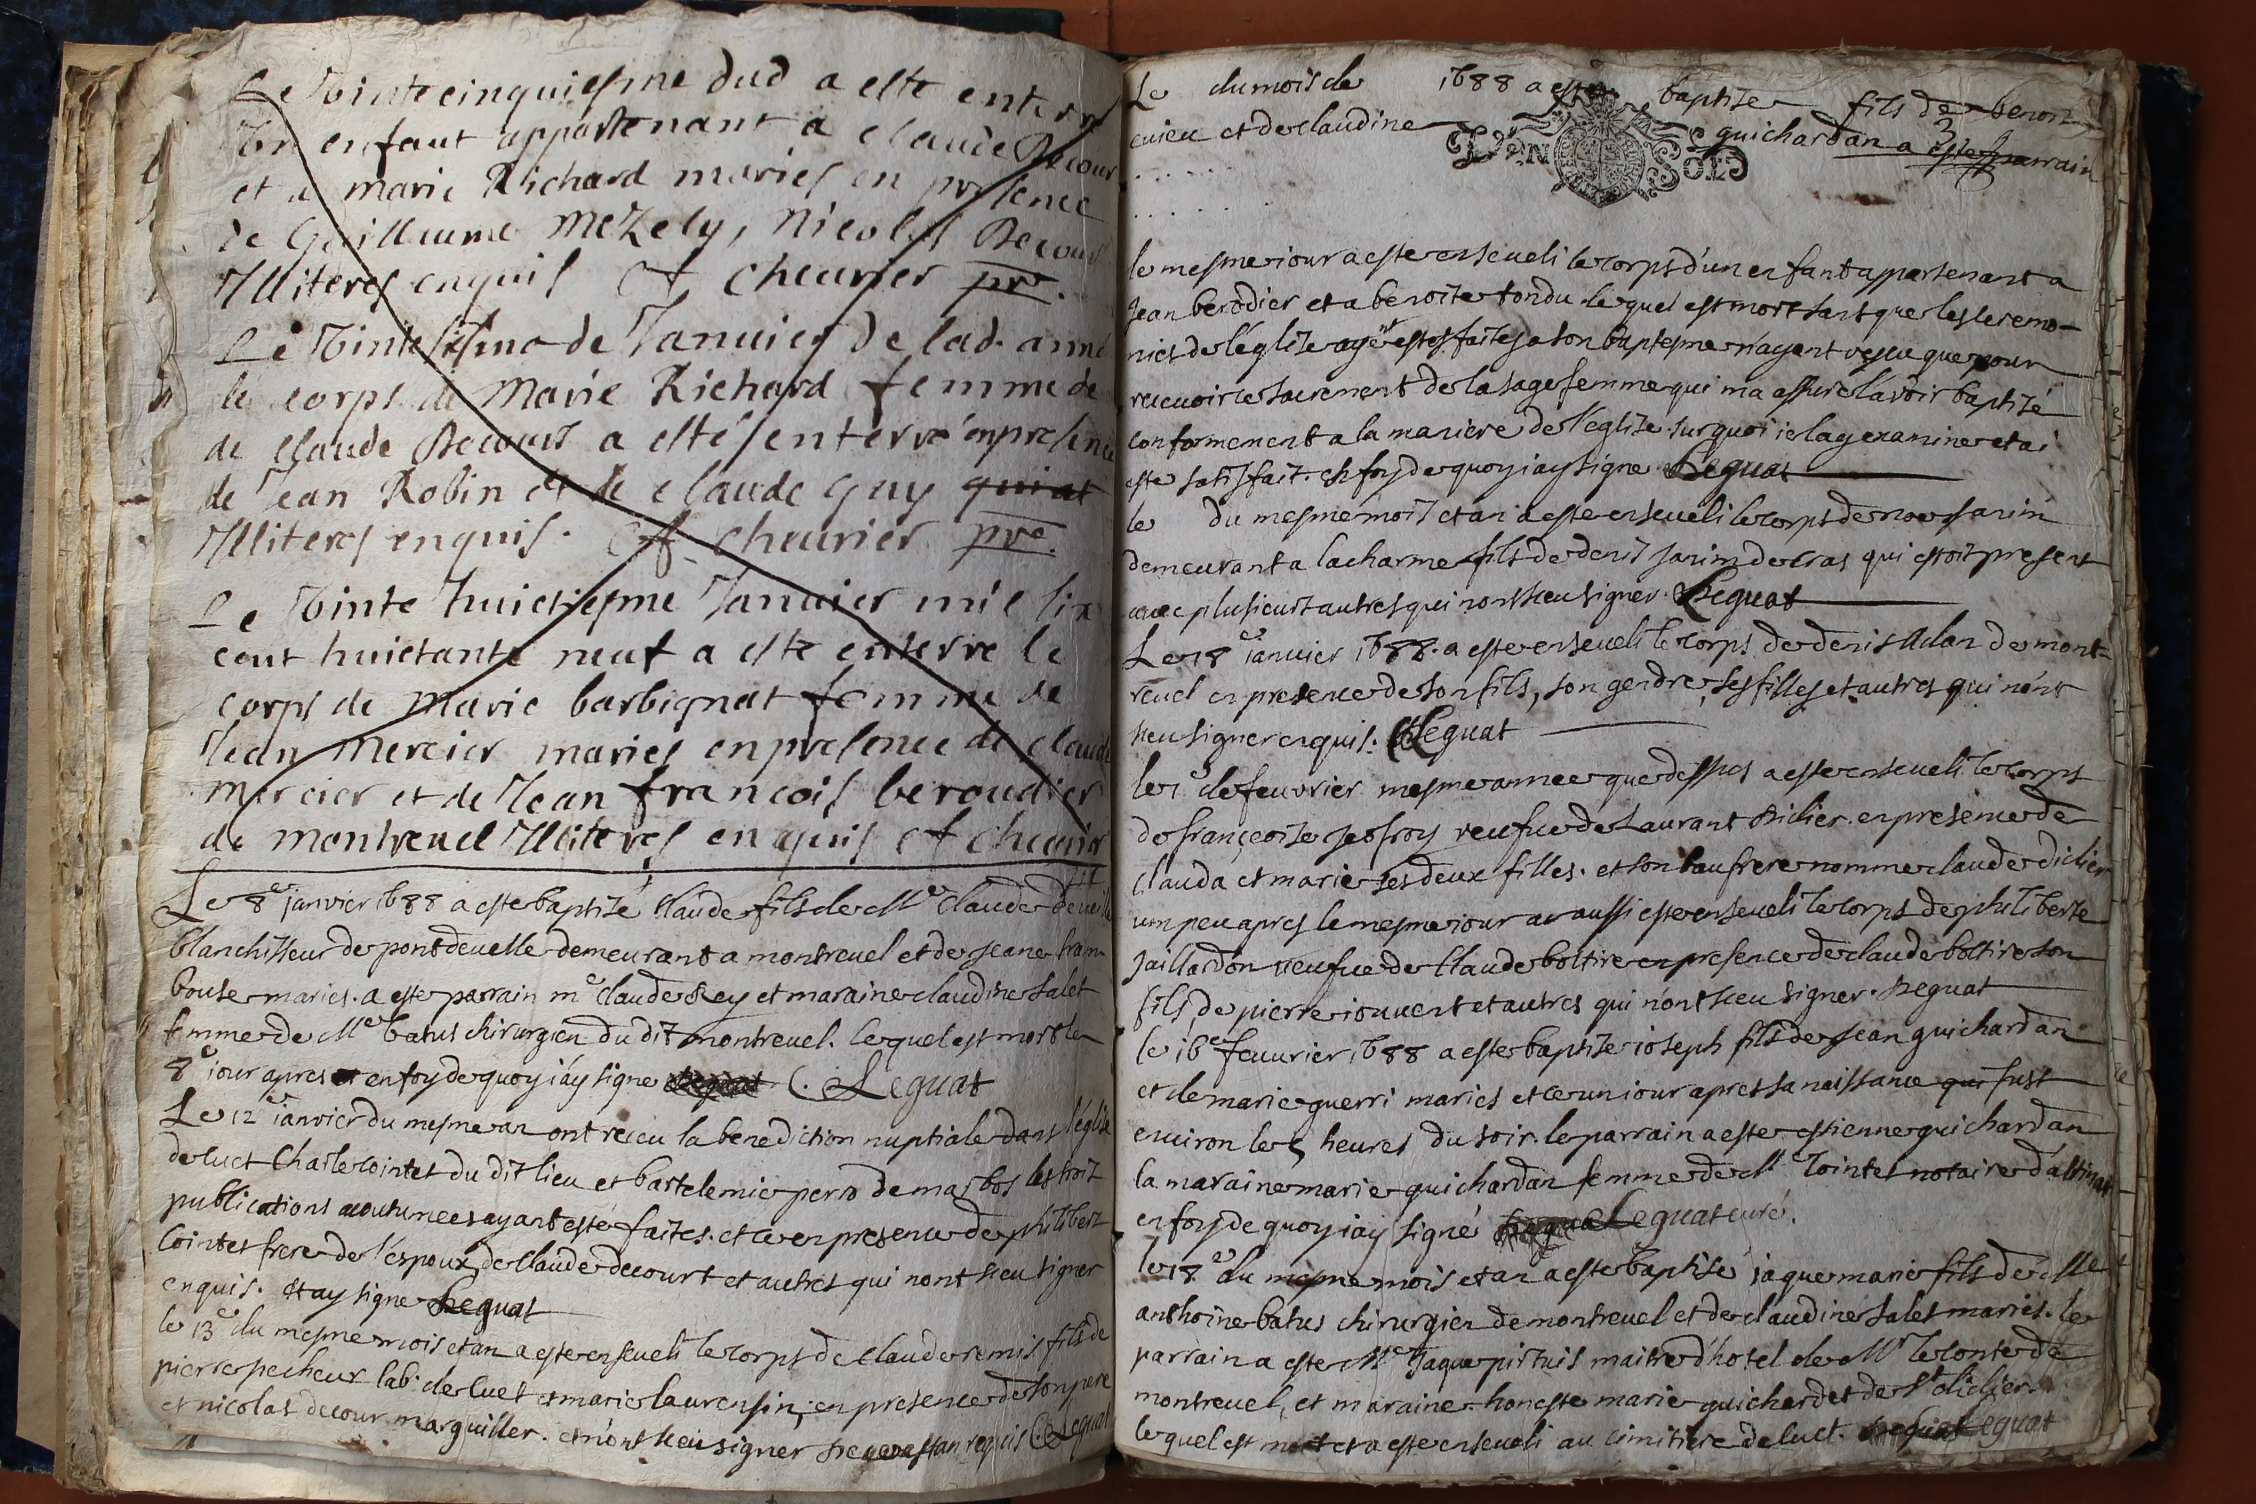 Le Vinte cinquiesme dud a este enterré
Un enfant appartenant a claude Decour
et a Marie Richard mariés en presence
de Guillaume Mezely, Nicolas Decour
Illiteres enquis Et Cheurier pre.
Le Vinte sisme de Januier de lad. anné
le corps de Marie Richard femme de
de Claude Decourt a esté enterré en presence
de Jean Robin et de Claude Guy
Illiteres enquis. Et Cheurier pre.
Le Vinte huictiesme Januier mil six
cent huictante neuf a este enterre le
corps de Marie barbignat femme de
Jean Mercier mariés en presence de claude
Mercier et de Jean françois beroudier
de Montreuel Illiteres enquis et Cheurier
Le 8e janvier 1688 a este baptisé Claude fils de Me Claude
blanchisseur de pontdeuelle demeurant a montreuel et de Jeane fram
bouse mariés. a este parrain me claude Rey et maraine claudine salet
femme de Me batus chirurgien du dit montreuel. lequel est mort le
8e iour apres et en foy de quoy i'ay signe Leguat
Le 12e ianvier du mesme an ont receu la benediction nuptiale dans l'église
de luct Charle cointet du dit lieu et bartelemie perro de marbos les troit
publications acoutumees ayant esté faites. et ce en presence de philibert
Cointet frere de l'espoux, de Claude decourt et autres qui nont sceu signer
enquis. et ay signe Leguat
le 13e du mesme mois et an a este enseueli le corps de Claude remis fils de
pierre pecheux lab. de luct et marie laurensin, en presence de son pere
et nicolas decour marguiller. et n'ont sceu signer de ce estan requis Leguat
Le du mois de 1688 a este baptise fils de benoit
cuieu et de claudine guichardan a este parrain
3
DEN SOLS
le mesme iour a este enseueli le corps d'un enfant appartenant a
Jean berodier et a benoite tondu lequel est mort sans que les ceremo-
nies de l'église aye estes faites a son baptesme n'ayant vescu que pour
receuoir ce sacrement de la sagefemme qui m'a assure l'avoir baptisé
conformement a la maniere de l'église. sur quoi ie lay examine et ai
este satisfait. en foy de quoy iay signe Leguat
le du mesme mois et an a este enseueli le corps de noe janin
demeurant a lacharme fils de denis janin de cras qui estoit present
auec plusieurs autres qui nont sceu signer. Leguat
Le 18e ianuier 1688. a este enseueli le corps de denis Adan de mont-
reuel en presence de son fils, son gendre, ses filles et autres qui nont
sceu signer enquis. Leguat
le 1e de feuvrier mesme annee que dessus a este enseueli le corps
de françoise jeofroy veufue de Laurant Didier. en presence de
clauda et marie ses deux filles. et son baufrere nomme claude didier
um peu apres le mesme iour a aussi este enseueli le corps de philiberte
Jaillardon veufue de Claude boltire en presence de claude boltire son
fils, de pierre iouuent et autres qui n'ont sceu signer. Leguat
le 16e feuurier 1688 a este baptise ioseph fils de Jean guichardan
et de marie guerri mariés et ce un iour apres sa naissance qui fust
enuiron les 5 heures du soir. le parrain a este estienne guichardan
la maraine marie guichardan femme de Me Cointet notaire d'attignat
en foy de quoy i'ay signé Leguat curé.
le 18e du mesme mois et an a este baptisé jaque marie fils de Me
anthoine batus chirurgien de montreuel et de claudine salet mariés. le
parrain a este Me Jaque pirtuis maitre d'hotel de Mr le conte de
montreuel, et maraine honeste marie guichardet de St didier.
lequel est mort et a este enseueli au cimitiere de luct. Leguat